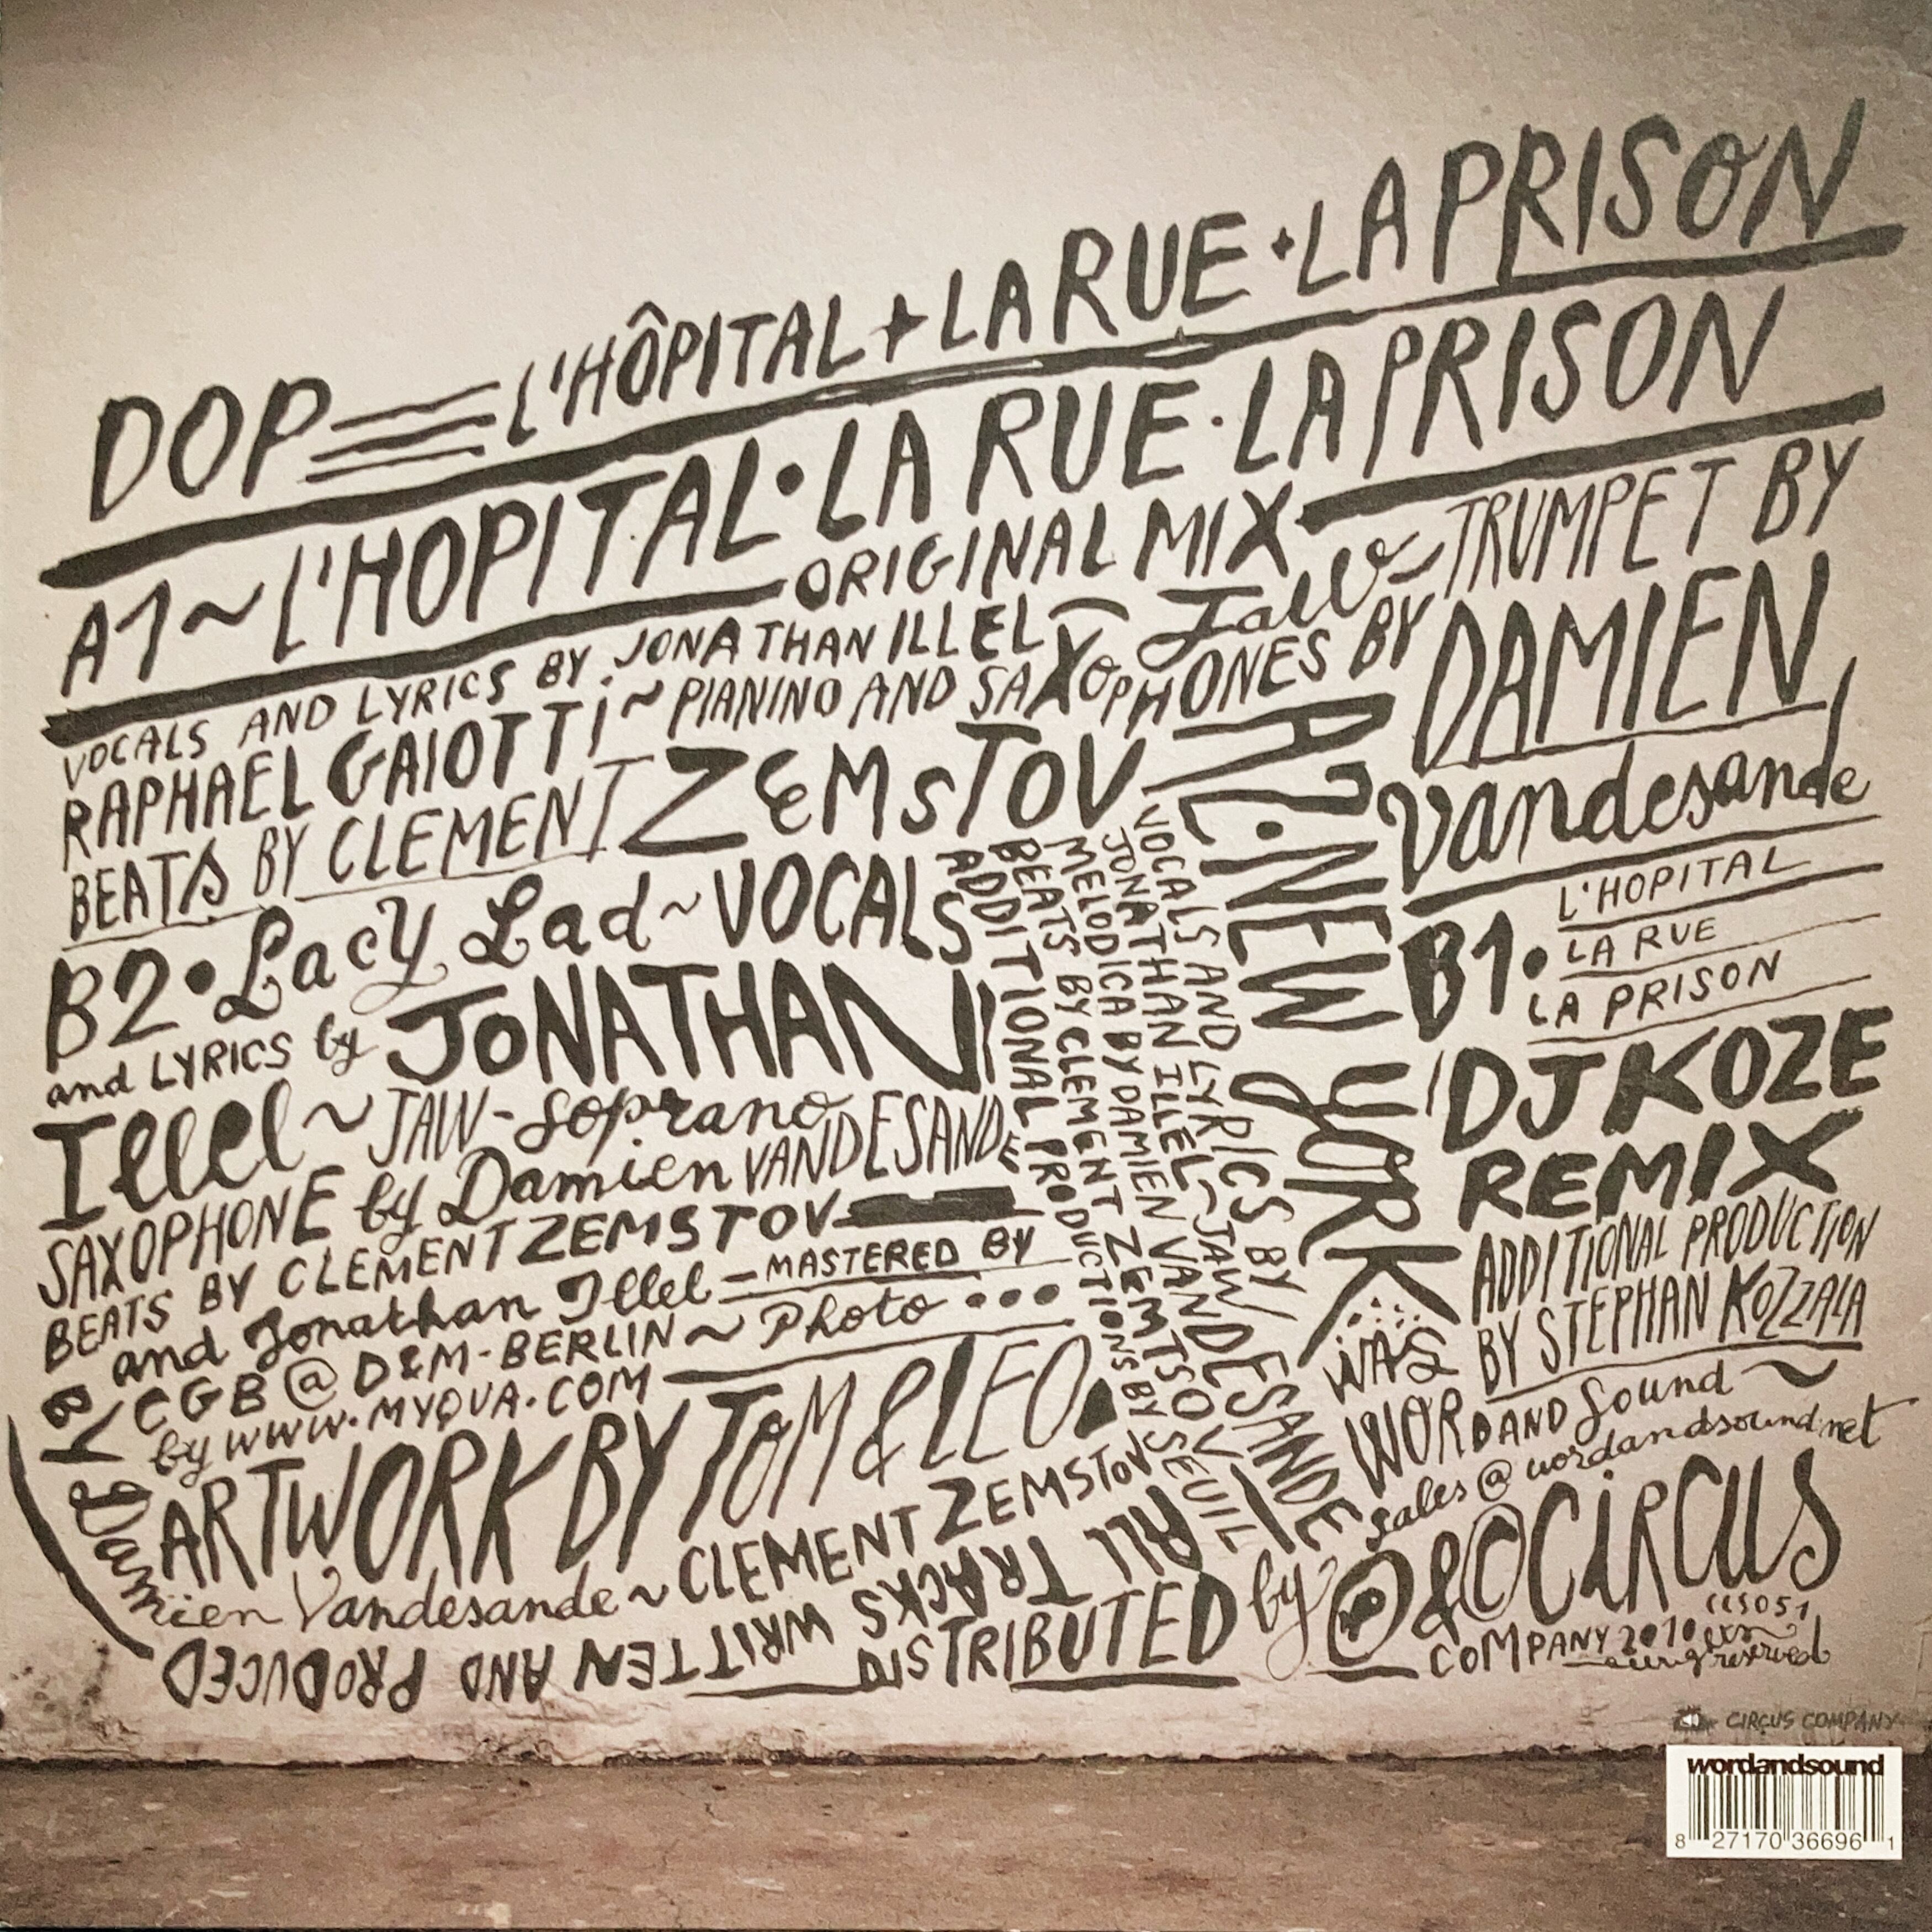 DOP L'HÔPITAL + LA RUE + LA PRISON
A1 ~ L'HOPITAL • LA RUE • LA PRISON
ORIGINAL MIX
VOCALS AND LYRICS BY JONATHAN ILLEL
RAPHAEL GAIOTTI ~ PIANINO AND SAXOPHONES BY
BEATS BY CLEMENT ZEMSTOV
Jaw ~ TRUMPET BY
DAMIEN
Vandesande
A2 • NEW YORK
VOCALS AND LYRICS BY
JONATHAN ILLEL ~ JAW
MELODICA BY DAMIEN VANDESANDE
BEATS BY CLEMENT ZEMTSOV
ADDITIONAL PRODUCTIONS BY SEUIL
B1 • L'HOPITAL
LA RUE
LA PRISON
DJ KOZE
REMIX
ADDITIONAL PRODUCTION
BY STEPHAN KOZZALA
B2 • Lacy Lad ~ VOCALS
and LYRICS by JONATHAN
Illel ~ JAW - Soprano
SAXOPHONE by Damien VANDESANDE
BEATS BY CLEMENT ZEMSTOV
and Jonathan Illel - MASTERED BY
CGB @ D&M - BERLIN ~ Photo ...
by WWW.MYQUA.COM
ARTWORK BY TOM & LEO
ALL TRACKS WRITTEN AND PRODUCED
by Damien Vandesande ~ CLEMENT ZEMSTOV
DISTRIBUTED by
WAS
WORDANDSOUND ~
sales@wordandsound.net
℗ & © CIRCUS
COMPANY 2010
CCS051
reserved
CIRCUS COMPANY
wordandsound
8 27170 36696 1